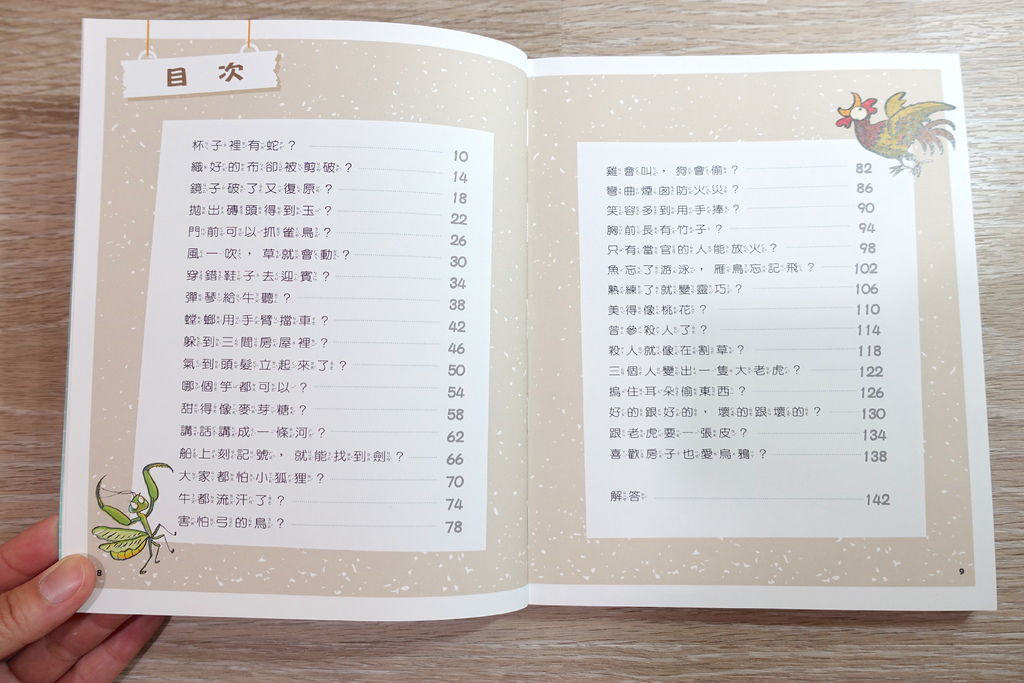 目次
杯子裡有蛇？ 10
織好的布卻被剪破？ 14
鏡子破了又復原？ 18
拋出磚頭得到玉？ 22
門前可以抓雀鳥？ 26
風一吹，草就會動？ 30
穿錯鞋子去迎賓？ 34
彈琴給牛聽？ 38
螳螂用手臂擋車？ 42
躲到三間房屋裡？ 46
氣到頭髮立起來了？ 50
哪個竽都可以？ 54
甜得像麥芽糖？ 58
講話講成一條河？ 62
船上刻記號，就能找到劍？ 66
大家都怕小狐狸？ 70
牛都流汗了？ 74
害怕弓的鳥？ 78
8
雞會叫，狗會偷？ 82
彎曲煙囪防火災？ 86
笑容多到用手捧？ 90
胸前長有竹子？ 94
只有當官的人能放火？ 98
魚忘了游泳，雁鳥忘記飛？ 102
熟練了就變靈巧？ 106
美得像桃花？ 110
曾參殺人了？ 114
殺人就像在割草？ 118
三個人變出一隻大老虎？ 122
摀住耳朵偷東西？ 126
好的跟好的，壞的跟壞的？ 130
跟老虎要一張皮？ 134
喜歡房子也愛烏鴉？ 138
解答 142
9